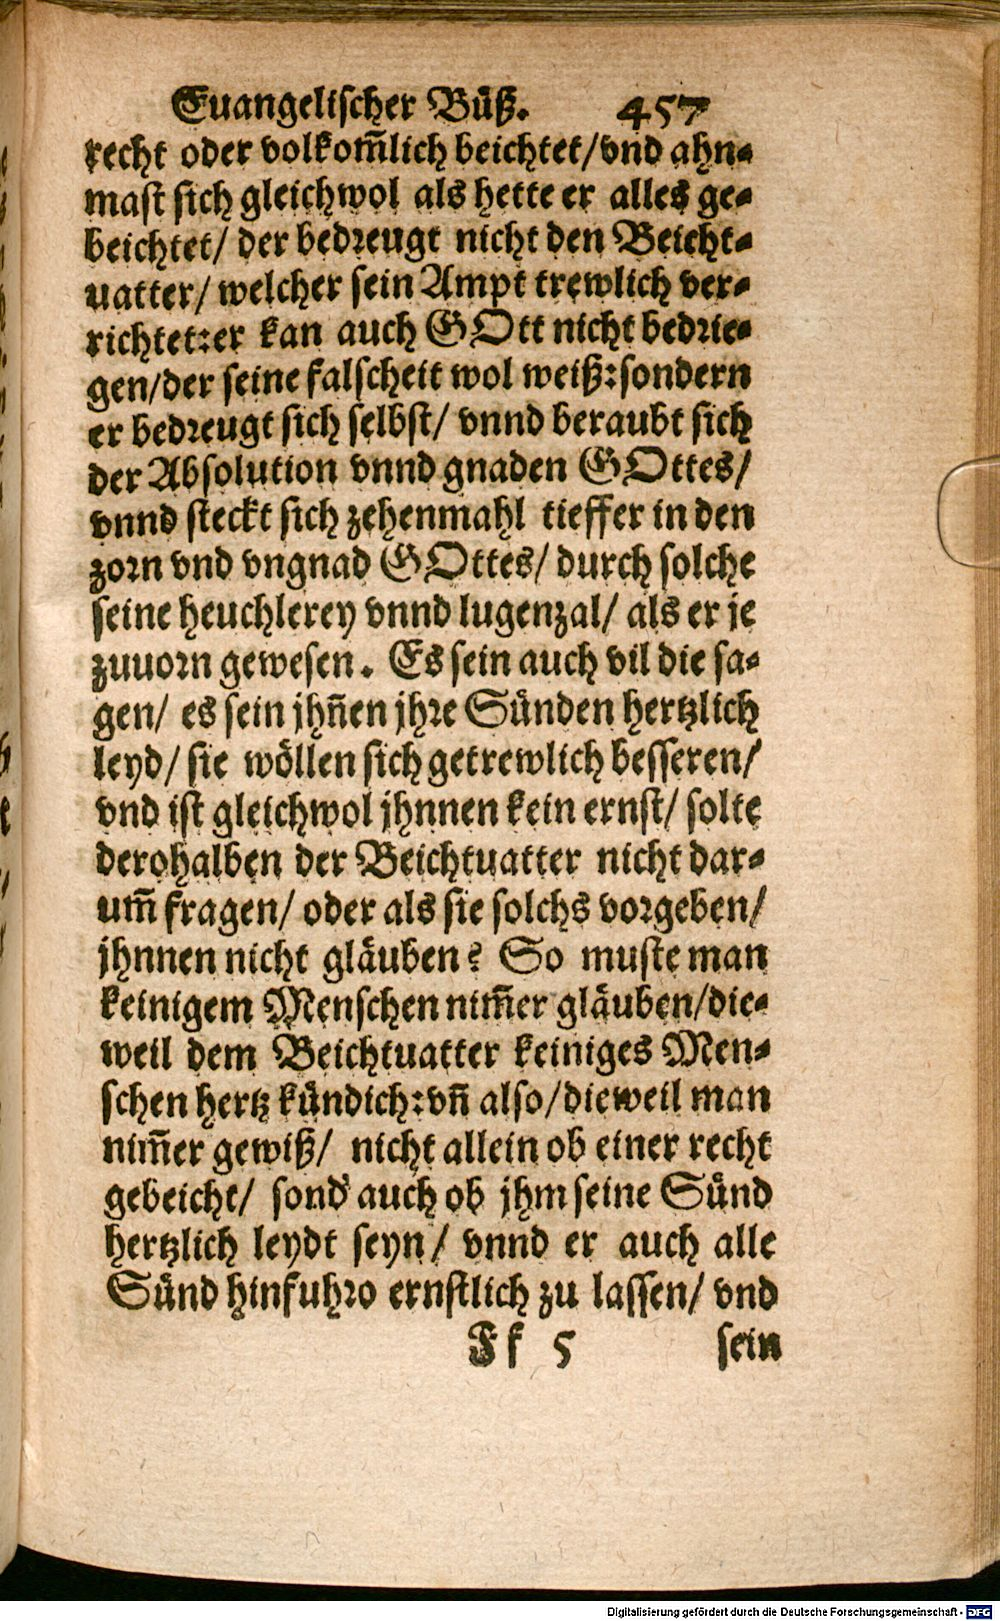 Euangelischer Büß. 457
recht oder volkom̃lich beichtet/vnd ahn-
mast sich gleichwol als hette er alles ge-
beichtet/ der bedreugt nicht den Beicht-
uatter/ welcher sein Ampt trewlich ver-
richtet:er kan auch GOtt nicht bedrie-
gen/der seine falscheit wol weiß:sondern
er bedreugt sich selbst/ vnnd beraubt sich
der Absolution vnnd gnaden GOttes/
vnnd steckt sich zehenmahl tieffer in den
zorn vnd vngnad GOttes/ durch solche
seine heuchlerey vnnd lugenzal/ als er je
zuuorn gewesen. Es sein auch vil die sa-
gen/ es sein jhñen jhre Sünden hertzlich
leyd/ sie wöllen sich getrewlich besseren/
vnd ist gleichwol jhnnen kein ernst/ solte
derohalben der Beichtuatter nicht dar-
um̃ fragen/ oder als sie solchs vorgeben/
jhnnen nicht gläuben? So muste man
keinigem Menschen nim̃er gläuben/die-
weil dem Beichtuatter keiniges Men-
schen hertz kündich:vñ also/dieweil man
nim̃er gewiß/ nicht allein ob einer recht
gebeicht/ sond' auch ob jhm seine Sünd
hertzlich leydt seyn/ vnnd er auch alle
Sünd hinfuhro ernstlich zu lassen/ vnd
Ff 5 sein
Digitalisierung gefördert durch die Deutsche Forschungsgemeinschaft - DFG